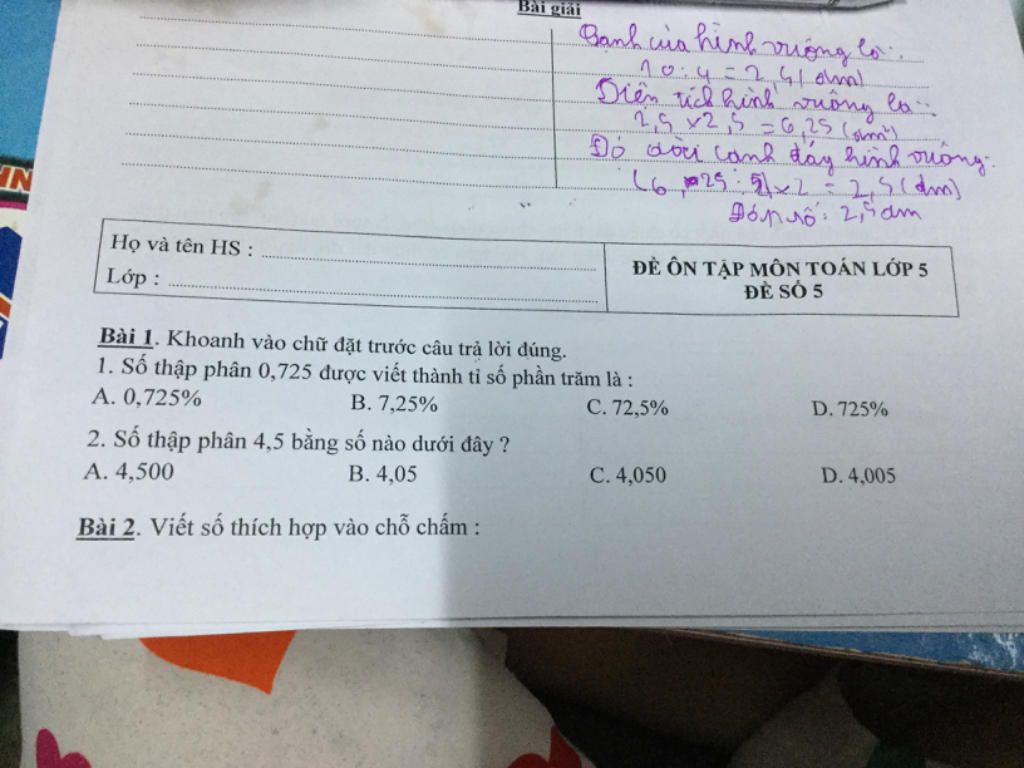 Bài giải
Cạnh của hình vuông là:
10 : 4 = 2,5 (dm)
Diện tích hình vuông là:
2,5 x 2,5 = 6,25 (dm²)
Độ dài cạnh đáy hình vuông:
(6,25 : 5) x 2 = 2,5 (dm)
Đáp số: 2,5 dm
HN
Họ và tên HS :
Lớp :
ĐỀ ÔN TẬP MÔN TOÁN LỚP 5
ĐỀ SỐ 5
Bài 1. Khoanh vào chữ đặt trước câu trả lời đúng.
1. Số thập phân 0,725 được viết thành tỉ số phần trăm là :
A. 0,725% B. 7,25% C. 72,5% D. 725%
2. Số thập phân 4,5 bằng số nào dưới đây ?
A. 4,500 B. 4,05 C. 4,050 D. 4,005
Bài 2. Viết số thích hợp vào chỗ chấm :